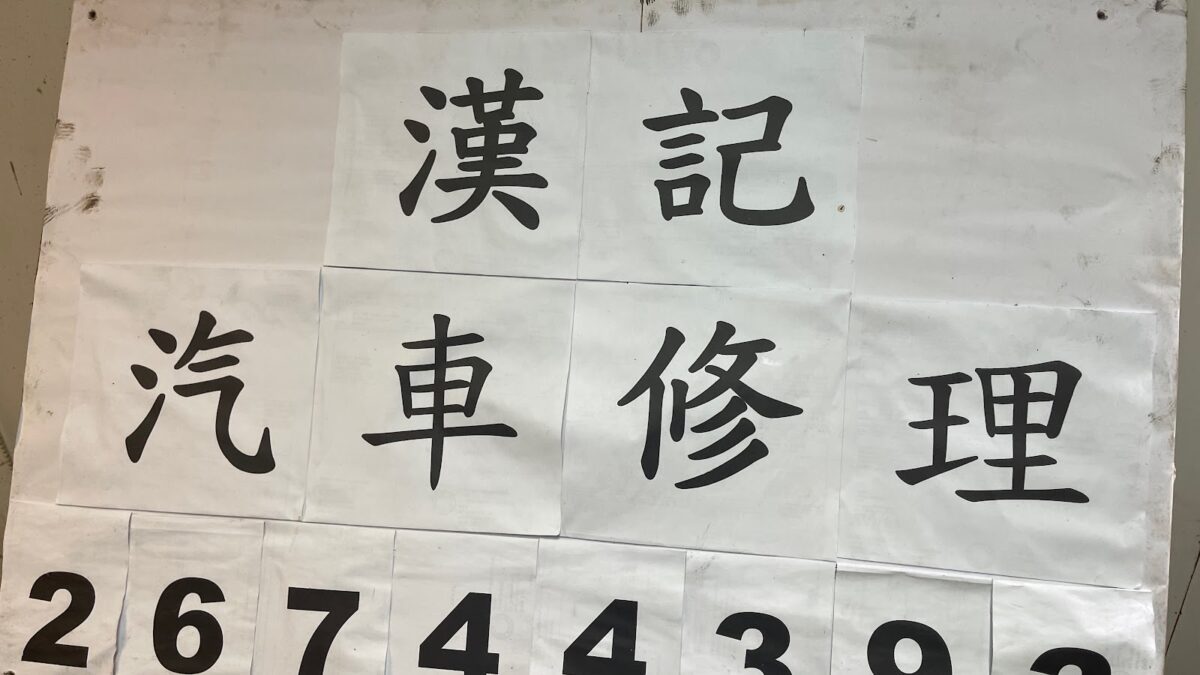 漢記
汽車修理
2674439